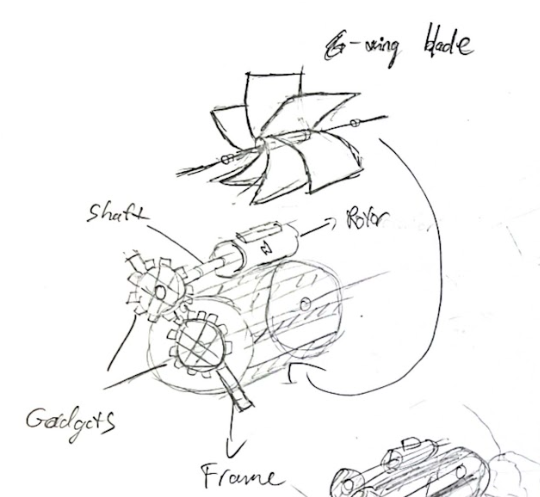 6-wing blade
Shaft
Rotor
N
Gadgets
Frame